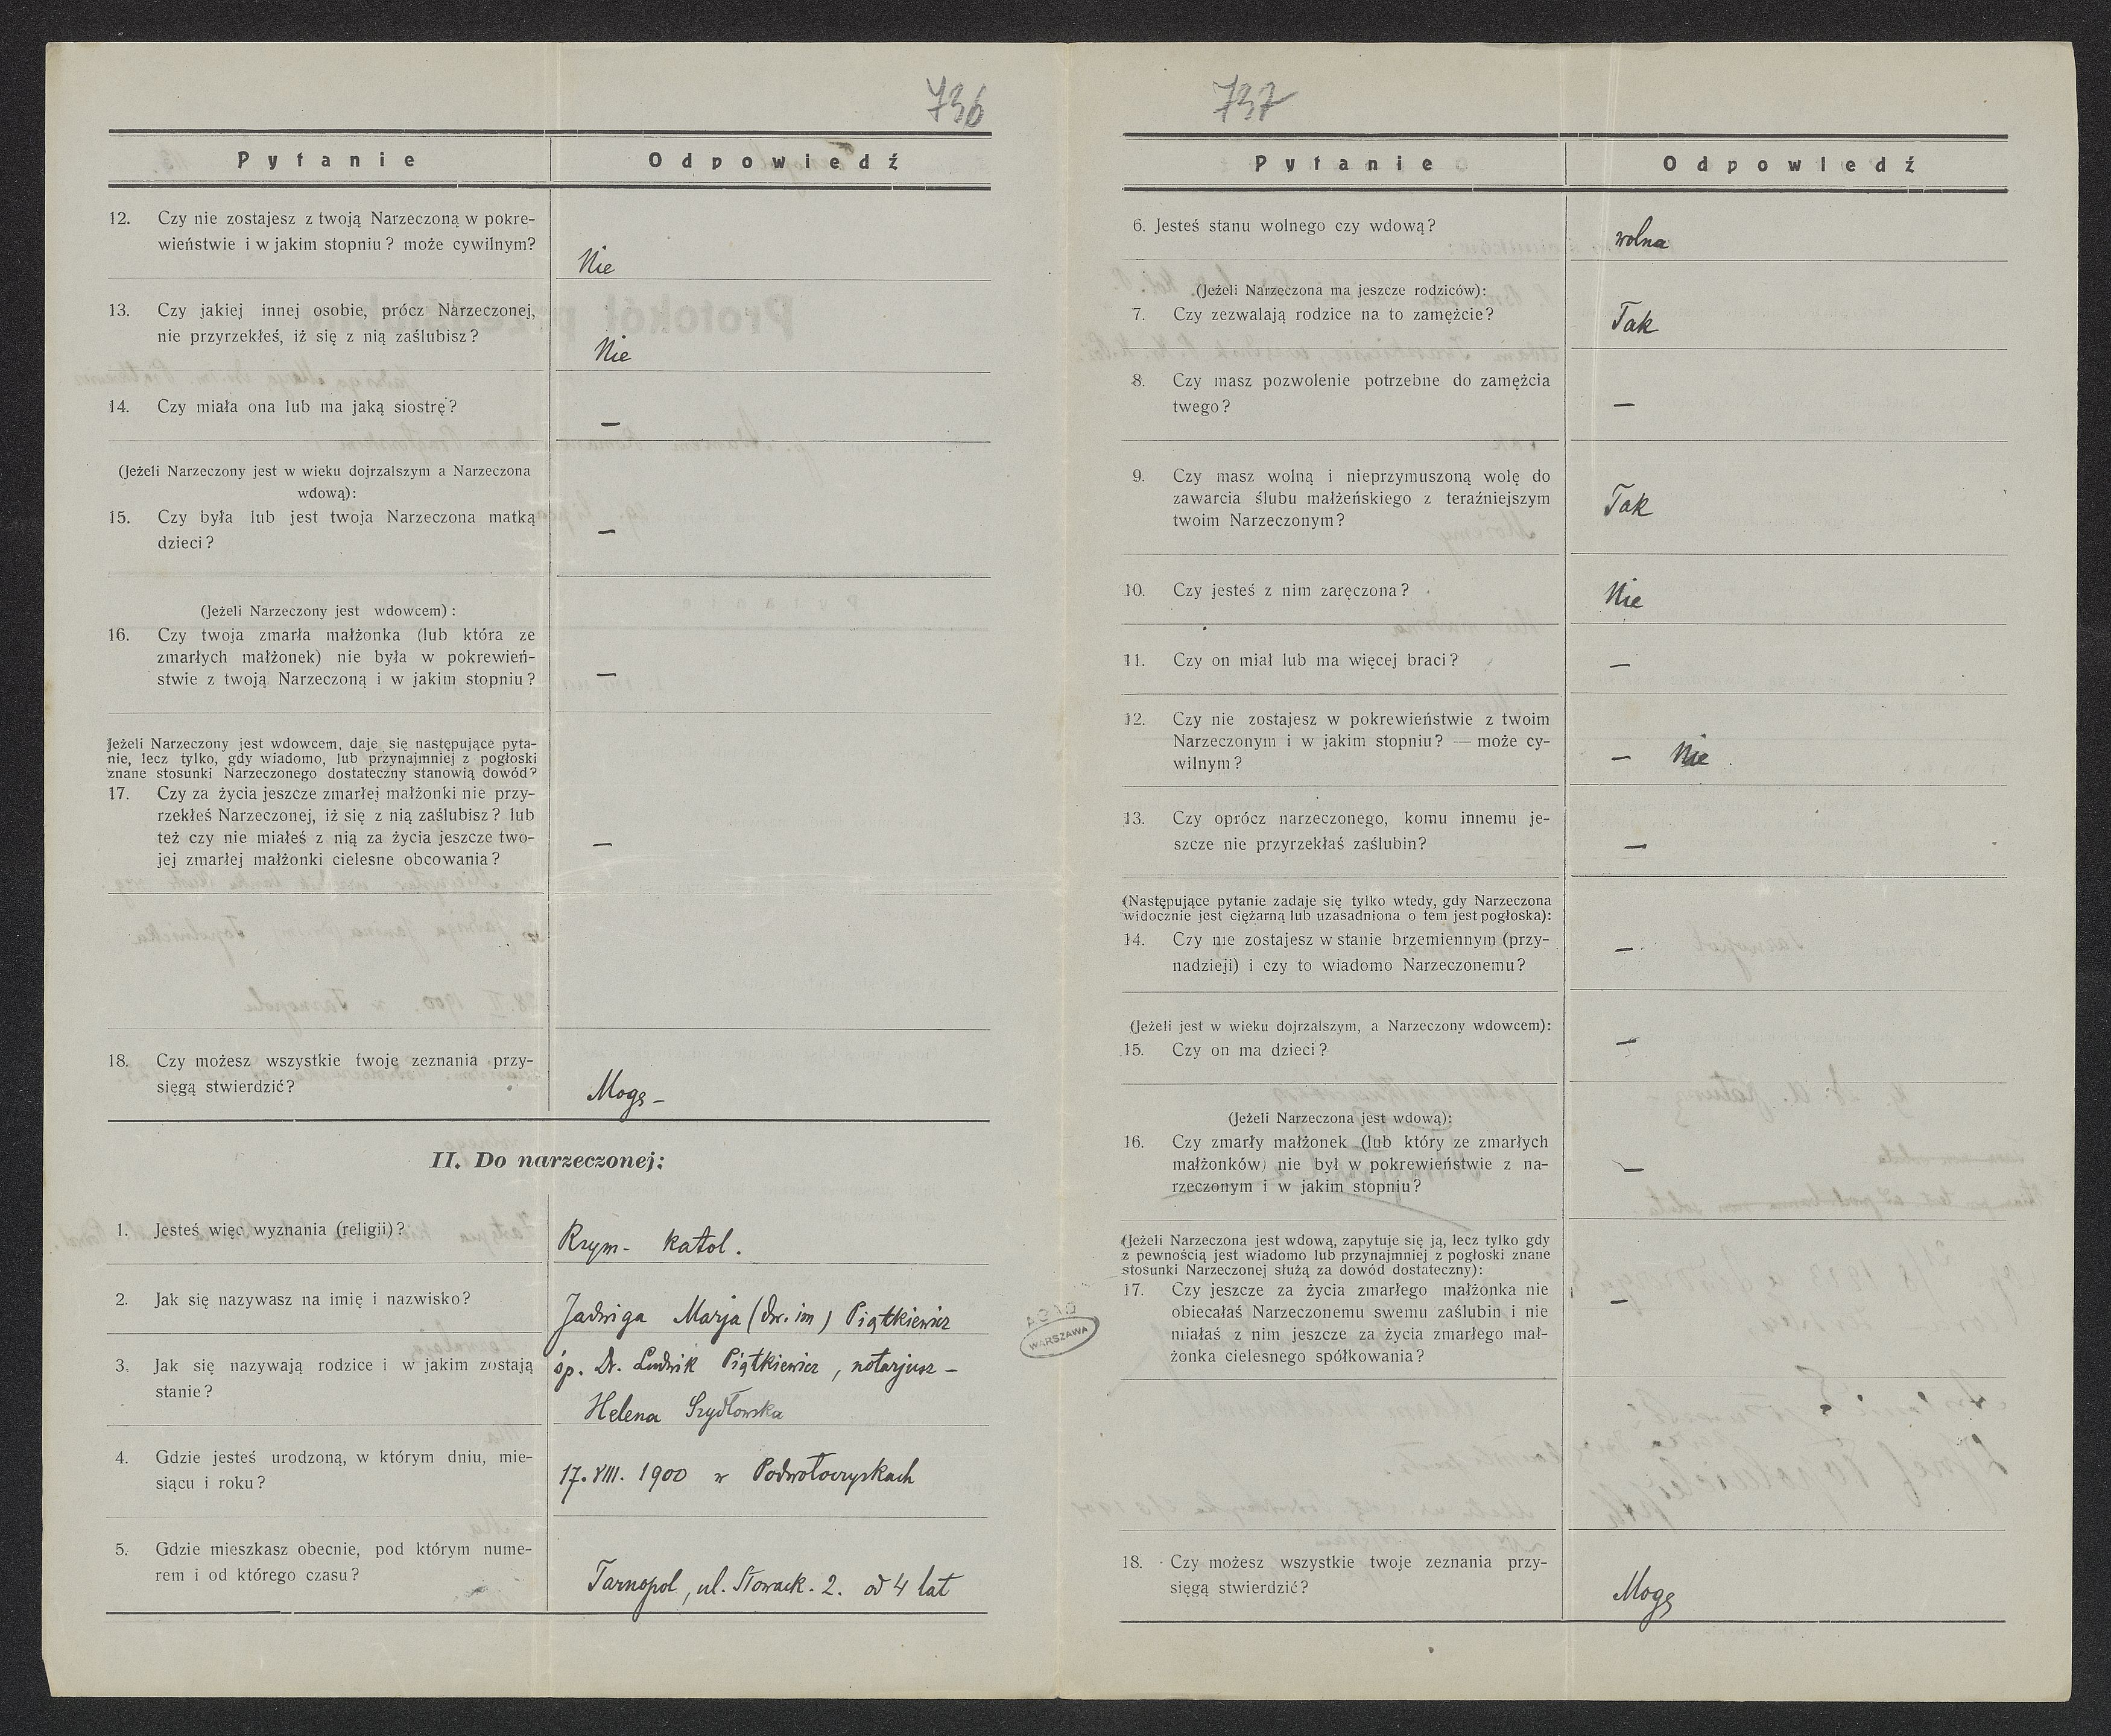 736
Pytanie Odpowiedź
12. Czy nie zostajesz z twoją Narzeczoną w pokre-
wieństwie i w jakim stopniu? może cywilnym?
Nie
13. Czy jakiej innej osobie, prócz Narzeczonej,
nie przyrzekłeś, iż się z nią zaślubisz?
Nie
14. Czy miała ona lub ma jaką siostrę?
—
(Jeżeli Narzeczony jest w wieku dojrzalszym a Narzeczona
wdową):
15. Czy była lub jest twoja Narzeczona matką
dzieci?
—
(Jeżeli Narzeczony jest wdowcem):
16. Czy twoja zmarła małżonka (lub która ze
zmarłych małżonek) nie była w pokrewień-
stwie z twoją Narzeczoną i w jakim stopniu?
—
Jeżeli Narzeczony jest wdowcem, daje się następujące pyta-
nie, lecz tylko, gdy wiadomo, lub przynajmniej z pogłoski
znane stosunki Narzeczonego dostateczny stanowią dowód?
17. Czy za życia jeszcze zmarłej małżonki nie przy-
rzekłeś Narzeczonej, iż się z nią zaślubisz? lub
też czy nie miałeś z nią za życia jeszcze two-
jej zmarłej małżonki cielesne obcowania?
—
18. Czy możesz wszystkie twoje zeznania przy-
sięgą stwierdzić?
Mogę –
II. Do narzeczonej:
1. Jesteś więc wyznania (religii)?
Rzym- katol.
2. Jak się nazywasz na imię i nazwisko?
Jadwiga Marja (dw. im) Piątkiewicz
3. Jak się nazywają rodzice i w jakim zostają
stanie?
śp. Dr. Ludwik Piątkiewicz, notarjusz –
Helena Szydłowska
4. Gdzie jesteś urodzoną, w którym dniu, mie-
siącu i roku?
17. VIII. 1900 w Podwołoczyskach
5. Gdzie mieszkasz obecnie, pod którym nume-
rem i od którego czasu?
Tarnopol, ul. Słowack. 2. od 4 lat
AGAD
WARSZAWA
737
Pytanie Odpowiedź
6. Jesteś stanu wolnego czy wdową?
wolna
(Jeżeli Narzeczona ma jeszcze rodziców):
7. Czy zezwalają rodzice na to zamężcie?
Tak
8. Czy masz pozwolenie potrzebne do zamężcia
twego?
—
9. Czy masz wolną i nieprzymuszoną wolę do
zawarcia ślubu małżeńskiego z teraźniejszym
twoim Narzeczonym?
Tak
10. Czy jesteś z nim zaręczona?
Nie
11. Czy on miał lub ma więcej braci?
—
12. Czy nie zostajesz w pokrewieństwie z twoim
Narzeczonym i w jakim stopniu? — może cy-
wilnym?
— Nie
13. Czy oprócz narzeczonego, komu innemu je-
szcze nie przyrzekłaś zaślubin?
—
(Następujące pytanie zadaje się tylko wtedy, gdy Narzeczona
widocznie jest ciężarną lub uzasadniona o tem jest pogłoska):
14. Czy nie zostajesz w stanie brzemiennym (przy-
nadzieji) i czy to wiadomo Narzeczonemu?
—
(Jeżeli jest w wieku dojrzalszym, a Narzeczony wdowcem):
15. Czy on ma dzieci?
—
(Jeżeli Narzeczona jest wdową):
16. Czy zmarły małżonek (lub który ze zmarłych
małżonków) nie był w pokrewieństwie z na-
rzeczonym i w jakim stopniu?
—
(Jeżeli Narzeczona jest wdową, zapytuje się ją, lecz tylko gdy
z pewnością jest wiadomo lub przynajmniej z pogłoski znane
stosunki Narzeczonej służą za dowód dostateczny):
17. Czy jeszcze za życia zmarłego małżonka nie
obiecałaś Narzeczonemu swemu zaślubin i nie
miałaś z nim jeszcze za życia zmarłego mał-
żonka cielesnego spółkowania?
—
18. Czy możesz wszystkie twoje zeznania przy-
sięgą stwierdzić?
Mogę